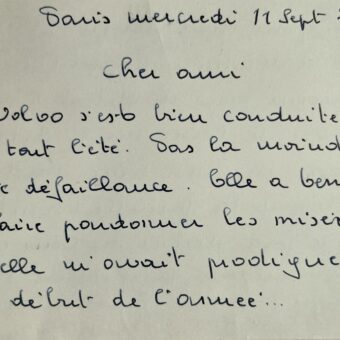 Paris mercredi 11 Sept
Cher ami
Volvo s'est bien conduite
tout l'été. Pas la moind
défaillance. Elle a ben
faire pardonner les misèr
elle m'avait prodigué
début de l'année...